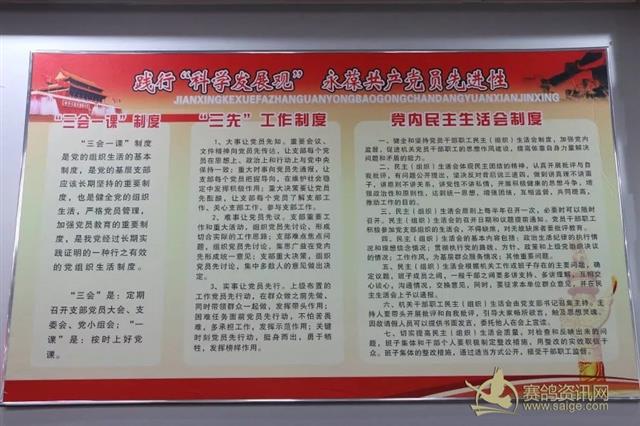 践行“科学发展观” 永葆共产党员先进性
JIANXINGKEXUEFAZHANGUANYONGBAOGONGCHANDANGYUANXIANJINXING
“三会一课”制度
“三会一课”制度
是党的组织生活的基本
制度，是党的基层支部
应该长期坚持的重要制
度，也是健全党的组织
生活，严格党员管理，
加强党员教育的重要制
度，是我党经过长期实
践证明的一种行之有效
的党组织生活制度。
“三会”是：定期
召开支部党员大会、支
委会、党小组会；“一
课”是：按时上好党
课。
“三先”工作制度
1、大事让党员先知。重要会议、
文件精神向党员先传达，让支部每个党
员在思想上、政治上和行动上与党中央
保持一致；重大时事向党员先通报，让
支部每个党员把握导向，在维护社会稳
定中发挥积极作用；重大决策要让党员
先酝酿，让支部每个党员了解支部工
作、关心支部工作、参与支部工作。
2、难事让党员先议。支部重要工作
和重大活动，组织党员先讨论，形成
切合实际的工作思路；支部难点焦点问
题，组织党员先讨论，集思广益在党内
先形成统一意见；支部重大决策，组织
党员先讨论，集中多数人的意见做出决
定。
3、实事让党员先行。上级布置的
工作党员先行动，在群众做之前先做，
同时带领群众一起做，发挥带头作用；
困难任务面前党员先行动，不怕苦畏
难，多承担工作，发挥示范作用；关键
时刻党员先行动，挺身而出，勇于牺
牲，发挥榜样作用。
党内民主生活会制度
一、健全和坚持党员干部职工民主（组织）生活会制度，加强党内
监督，促进机关党员干部职工的思想作风建设，提高依靠自身力量解决
问题和矛盾的能力。
二、民主（组织）生活会体现民主团结的精神，认真开展批评与自
我批评，有问题公开提出，坚决反对背后说三道四，做到讲真理不讲面
子，讲原则不讲关系，讲党性不讲私情，开展积极健康的思想斗争，增
强政治性和原则性，达到统一思想，增强团结，互相监督，共同提高，
推动工作的目的。
三、民主（组织）生活会原则上每半年召开一次，必要时可以随时
召开。民主（组织）生活会的召开日期和议题提前通知。党员干部职工
积极参加党支部生活会，不得缺席，对无故缺席者要批评教育。
四、民主（组织）生活会的基本内容包括：政治生活纪律的执行情
况和理想信念情况；贯彻执行党的路线、方针、政策和上级党组织决议的
情况；工作作风，为基层群众服务情况；其他重要问题。
五、民主（组织）生活会根据机关工作或班子存在的主要问题，确
定议题，班子成员之间，一般干部之间要多讲支持、多讲理解，互相交
心谈心，沟通情况，交换意见，同时，要征求本单位群众意见，并在民主
生活会上予以通报。
六、机关干部职工民主（组织）生活会由党支部书记召集主持。主
持人要带头开展批评和自我批评，引导大家畅所欲言，触及思想灵魂。
因故请假人员可以提供书面发言，委托他人在会上宣读。
七、切实提高民主（组织）生活会质量，对检查和反映出来的问
题，班子集体和干部个人要积极制定整改措施，用整改的实效取信于
众。班子集体的整改措施，通过适当方式公开，接受干部职工监督。
赛鸽资讯网
www.saige.com